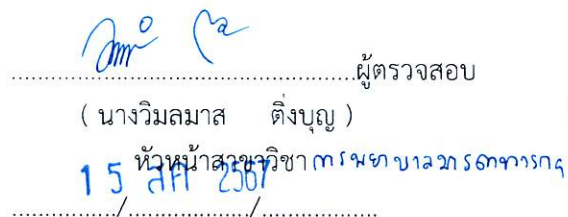 ผู้ตรวจสอบ
( นางวิมลมาส ติ่งบุญ )
หัวหน้าสาขาวิชา การพยาบาลมารดาทารกฯ
15 สค 2567